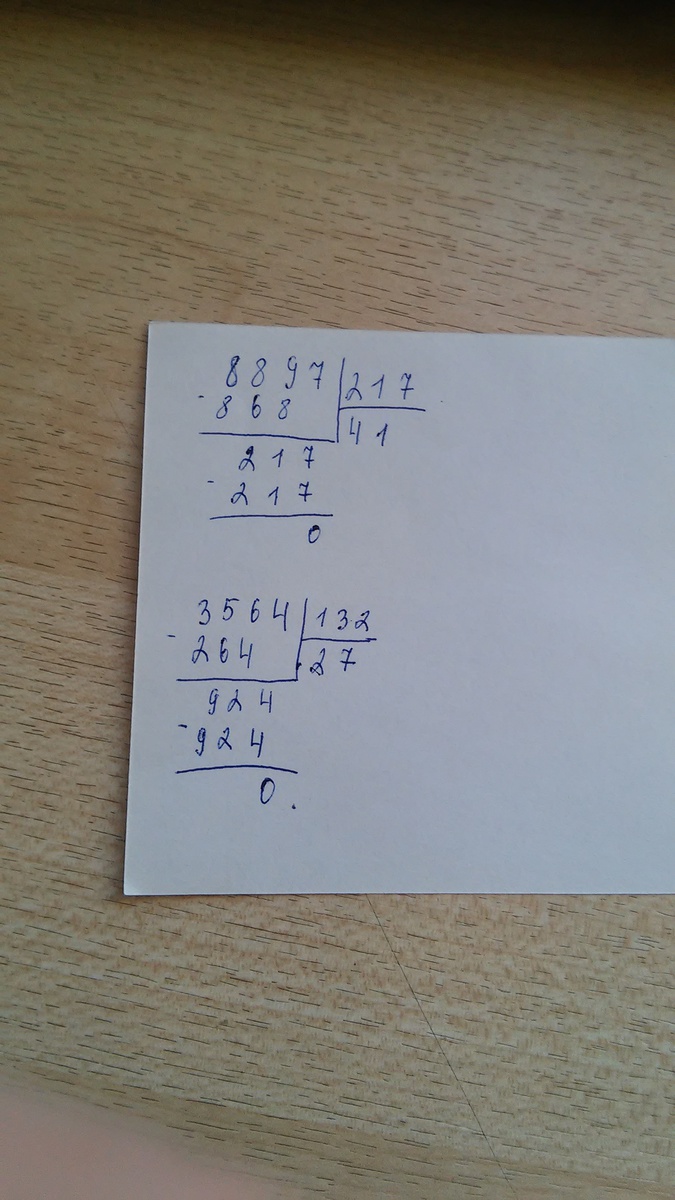 8897 217
- 868 41
217
- 217
0
3564 132
- 264 27
924
- 924
0.